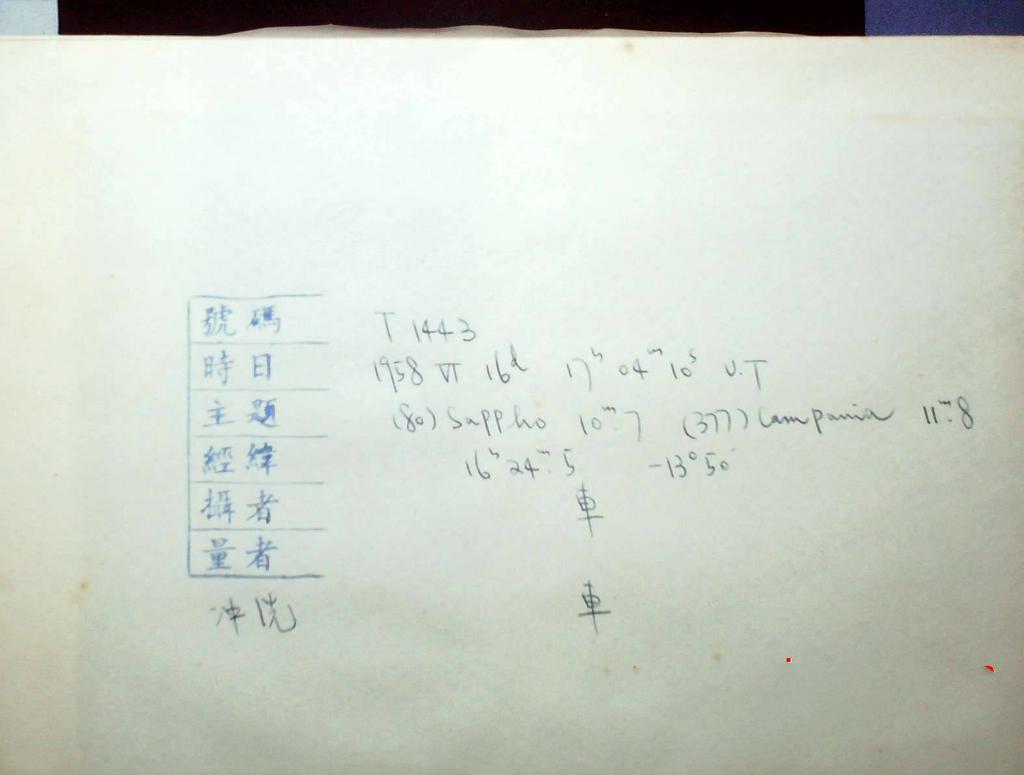 號碼 T 1443
時日 1958 VI 16d 17h 04m 10s U.T
主題 (80) Sappho 10m.7 (377) Campania 11m.8
經緯 16h 24m.5 -13°50'
攝者 車
量者
冲洗 車